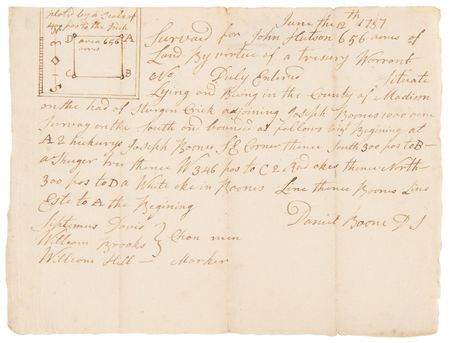 ploted by a Scale of
400 pos to the Inch
D A
area 656
acres
C B
June the 12th 1787
Survaid for John Hutson 656 acres of
Land By virtue of a tresury Warrant
No Duly Entered Situate
Lying and Being in the County of Madison
on the had of Sturgin Crick adjoining Joseph Boones 1000 acre
Survay on the South and bounded as follows viz Begining at
A 2 hickurys Joseph Boones S E Corner thence South 300 pos to B
a Shuger tree thence W 346 pos to C 2 Red okes thence North
300 pos to D a White oke in Boones Line thence Boones Line
Este to A the Begining
Septemus Davis
William Brooks } Chan men
William Hill — Marker
Daniel Boone D S